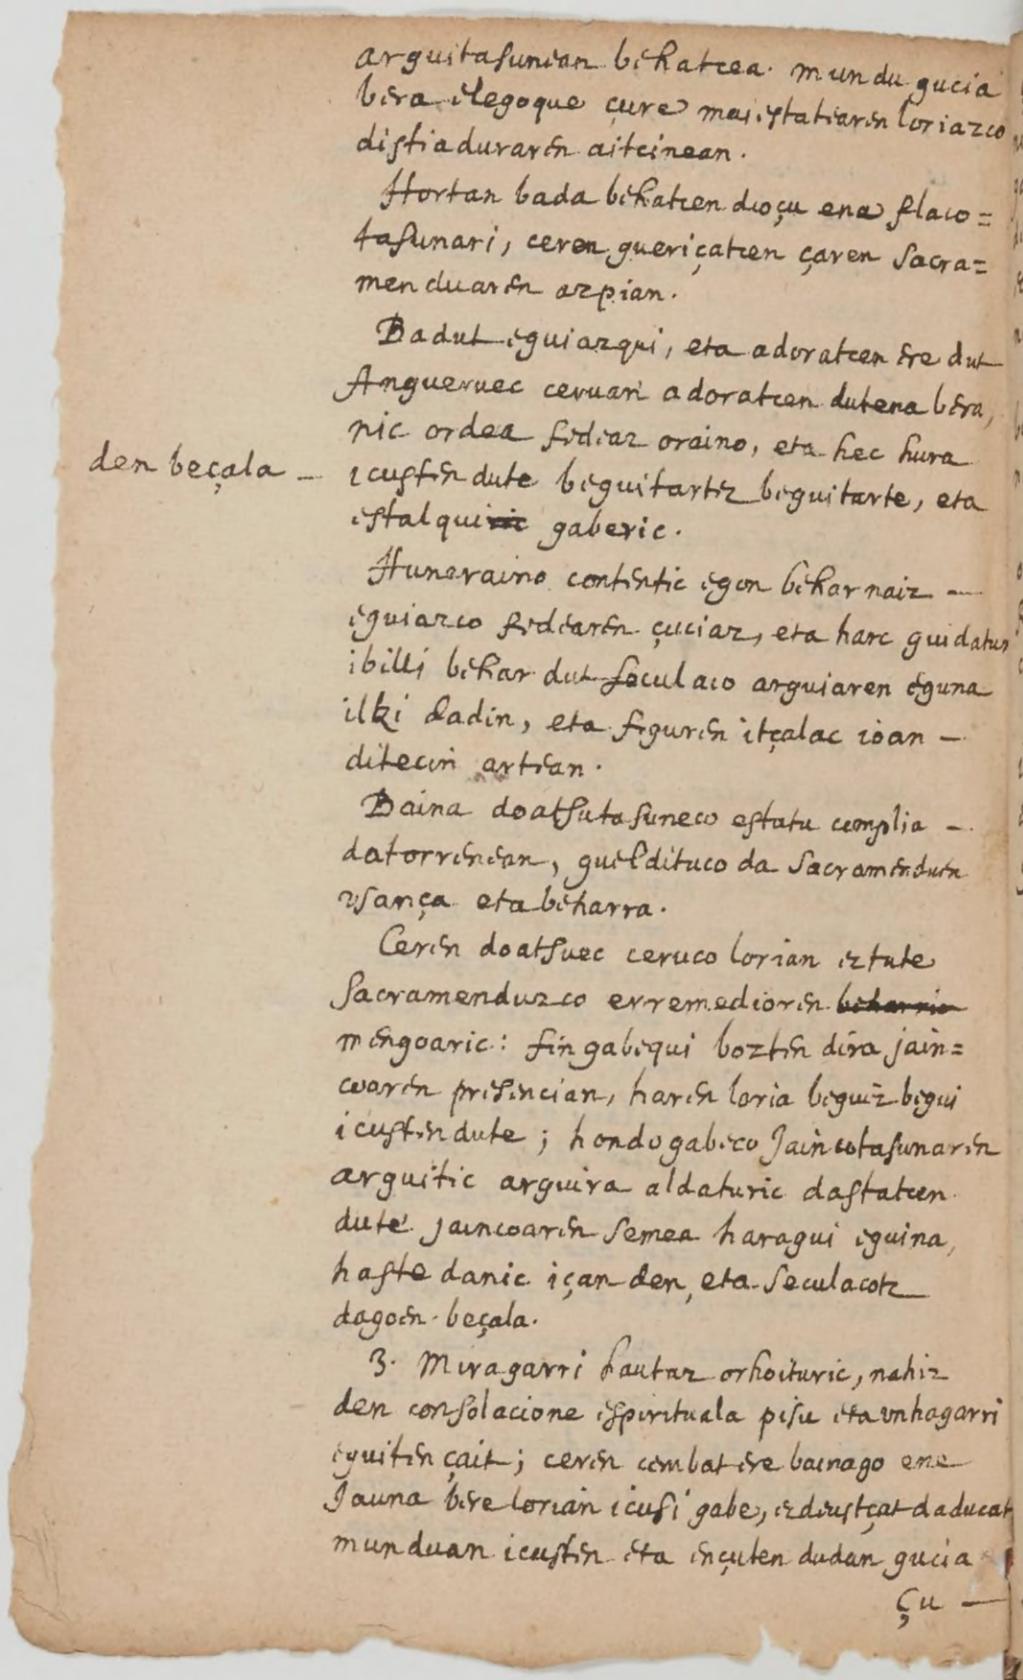 arguitaſunean behatcea. mundu gucia
bera elegoque çure maieſtatearen loriazco
diſtiaduraren aitcinean.
Hortan bada behatcen dioçu ene flaco=
taſunari, ceren gueriçatcen çaren Sacra=
menduaren azpian.
Badut eguiazqui, eta adoratcen ere dut
Angueruec ceruan adoratcen dutena bera,
nic ordea fedeaz oraino, eta hec hura
den beçala — icuſten dute beguitartez beguitarte, eta
eſtalqui gaberic.
Huneraino contentic egon behar naiz —
eguiazco fedearen çuciaz, eta harc guidatur
ibilli behar dut ſeculaco arguiaren eguna
ilki dadin, eta figuren itçalac ioan —
ditecin artean.
Baina doatſutaſuneco eſtatu complia —
datorrenean, gueldituco da Sacramenduen
vſança eta beharra.
Ceren doatſuec ceruco lorian eztute
Sacramenduzco erremedioren
mengoaric: fin gabequi bozten dira jain=
coaren preſencian, haren loria beguiz begui
icuſten dute; hondogabeco Jaincotaſunaren
arguitic arguira aldaturic daſtatcen
dute jaincoaren Semea haragui eguina,
haſte danic içan den, eta Seculacotz
dagoen beçala.
3. Miragarri hautaz orhoituric, nahiz
den conſolacione eſpirituala piſu eta vnhagarri
eguiten çait; ceren cembat ere bainago ene
Jauna bere lorian icuſi gabe, ezdeuſtçat daducat
munduan icuſten eta ençuten dudan gucia
çu —